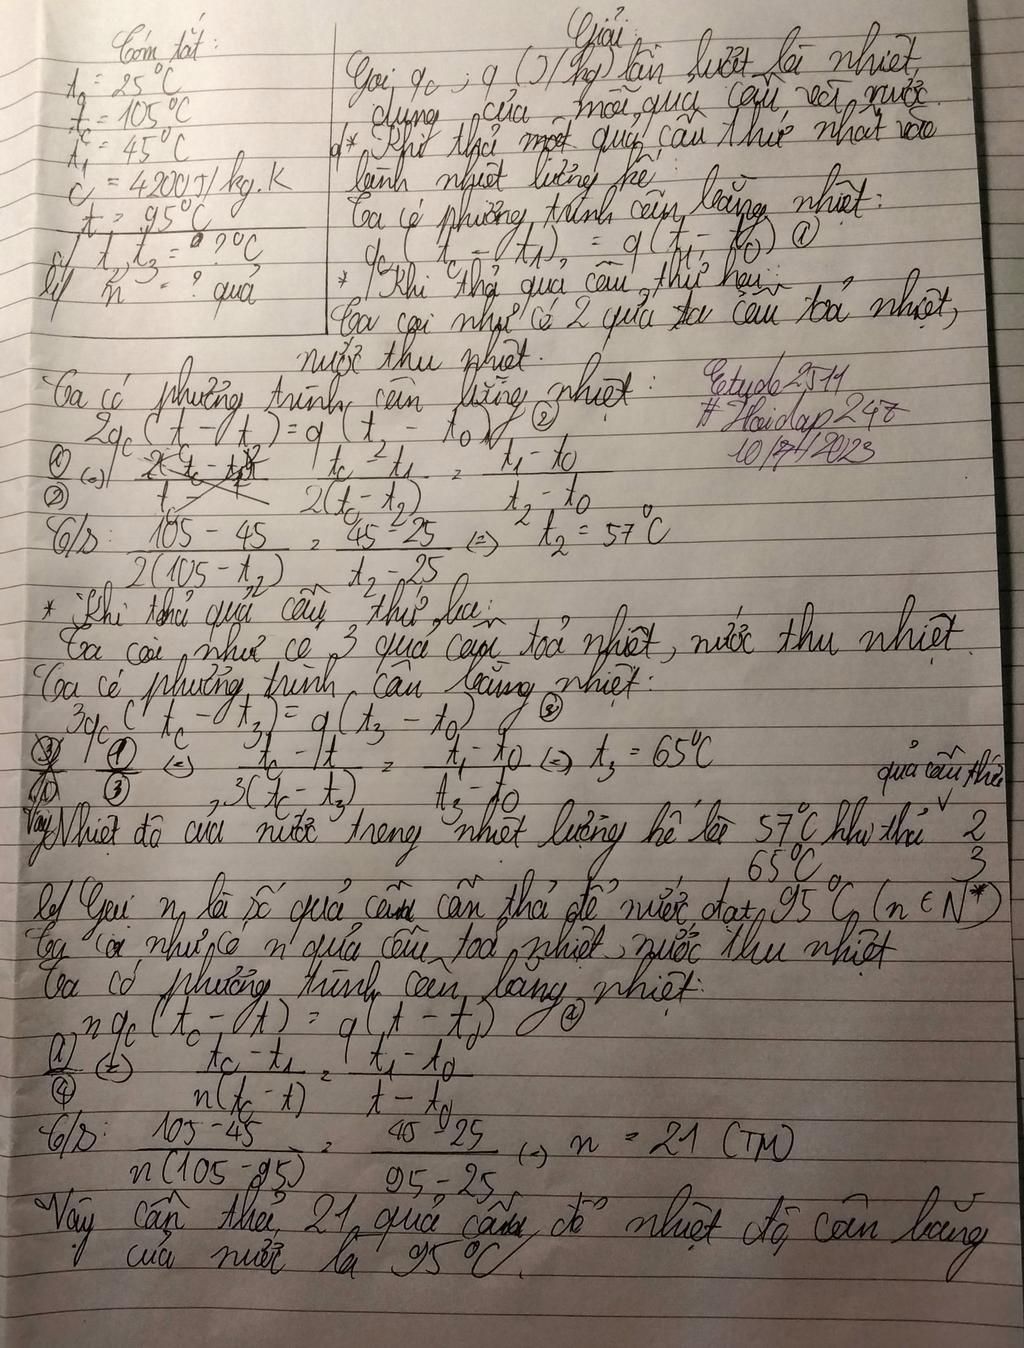 Tóm tắt:
t₀ = 25°C
t_c = 105°C
t₁ = 45°C
c = 4200J/kg.K
t = 95°C
a/ t₂, t₃ = ? °C
b/ n = ? quả
Giải:
Gọi q_c ; q (J/kg) lần lượt là nhiệt
dung của mỗi quả cầu và nước.
a* Khi thả một quả cầu thứ nhất vào
bình nhiệt lượng kế:
Ta có phương trình cân bằng nhiệt:
q_c(t_c - t₁) = q(t₁ - t₀) ①
* Khi thả quả cầu thứ hai:
Ta coi như có 2 quả cầu toả nhiệt,
nước thu nhiệt.
Ta có phương trình cân bằng nhiệt:
2q_c(t_c - t₂) = q(t₂ - t₀) ②
Etude2511
# Hoidap247
①/② (=) (t_c - t₁)/(2(t_c - t₂)) = (t₁ - t₀)/(t₂ - t₀)
T/s: (105 - 45)/(2(105 - t₂)) = (45 - 25)/(t₂ - 25) (=) t₂ = 57°C
* Khi thả quả cầu thứ ba:
Ta coi như có 3 quả cầu toả nhiệt, nước thu nhiệt.
Ta có phương trình cân bằng nhiệt:
3q_c(t_c - t₃) = q(t₃ - t₀) ③
①/③ (=) (t_c - t)/(3(t_c - t₃)) = (t₁ - t₀)/(t₃ - t₀) (=) t₃ = 65°C
quả cầu thứ
Vậy Nhiệt độ của nước trong nhiệt lượng kế là 57°C khi thả ∨ 2
65°C 3
b/ Gọi n là số quả cầu cần thả để nước đạt 95°C (n ∈ N*)
Ta coi như có n quả cầu toả nhiệt, nước thu nhiệt
Ta có phương trình cân bằng nhiệt:
nq_c(t_c - t) = q(t - t₀) ④
①/④ (=) (t_c - t₁)/(n(t_c - t)) = (t₁ - t₀)/(t - t₀)
T/s: (105 - 45)/(n(105 - 95)) = (45 - 25)/(95 - 25) (=) n = 21 (TM)
Vậy cần thả 21 quả cầu để nhiệt độ cân bằng
của nước là 95°C.